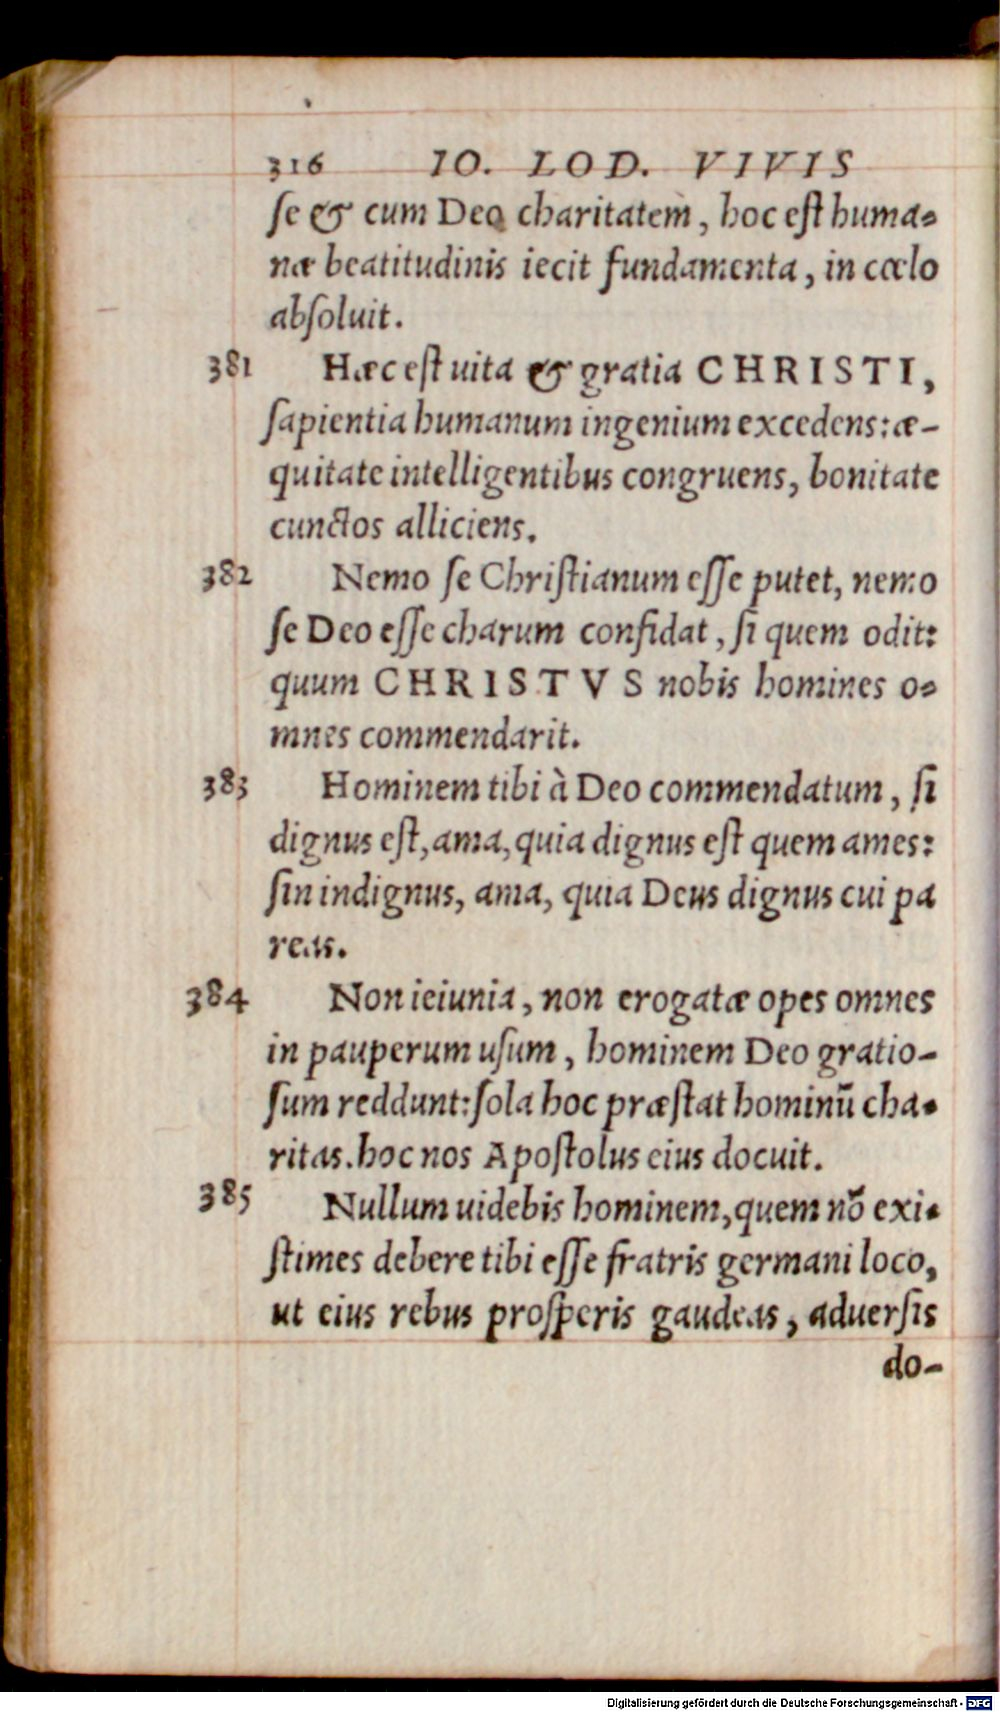 316 IO. LOD. VIVIS
ſe & cum Deo charitatem, hoc eſt huma-
næ beatitudinis iecit fundamenta, in cœlo
abſoluit.
381 Hæc eſt uita & gratia CHRISTI,
ſapientia humanum ingenium excedens: æ-
quitate intelligentibus congruens, bonitate
cunctos alliciens.
382 Nemo ſe Chriſtianum eſſe putet, nemo
ſe Deo eſſe charum confidat, ſi quem odit:
quum CHRISTVS nobis homines o-
mnes commendarit.
383 Hominem tibi à Deo commendatum, ſi
dignus eſt, ama, quia dignus eſt quem ames:
ſin indignus, ama, quia Deus dignus cui pa
reas.
384 Non ieiunia, non erogatæ opes omnes
in pauperum uſum, hominem Deo gratio-
ſum reddunt: ſola hoc præſtat hominū cha-
ritas. hoc nos Apoſtolus eius docuit.
385 Nullum uidebis hominem, quem nō exi-
ſtimes debere tibi eſſe fratris germani loco,
ut eius rebus proſperis gaudeas, aduerſis
do-
Digitalisierung gefördert durch die Deutsche Forschungsgemeinschaft - DFG